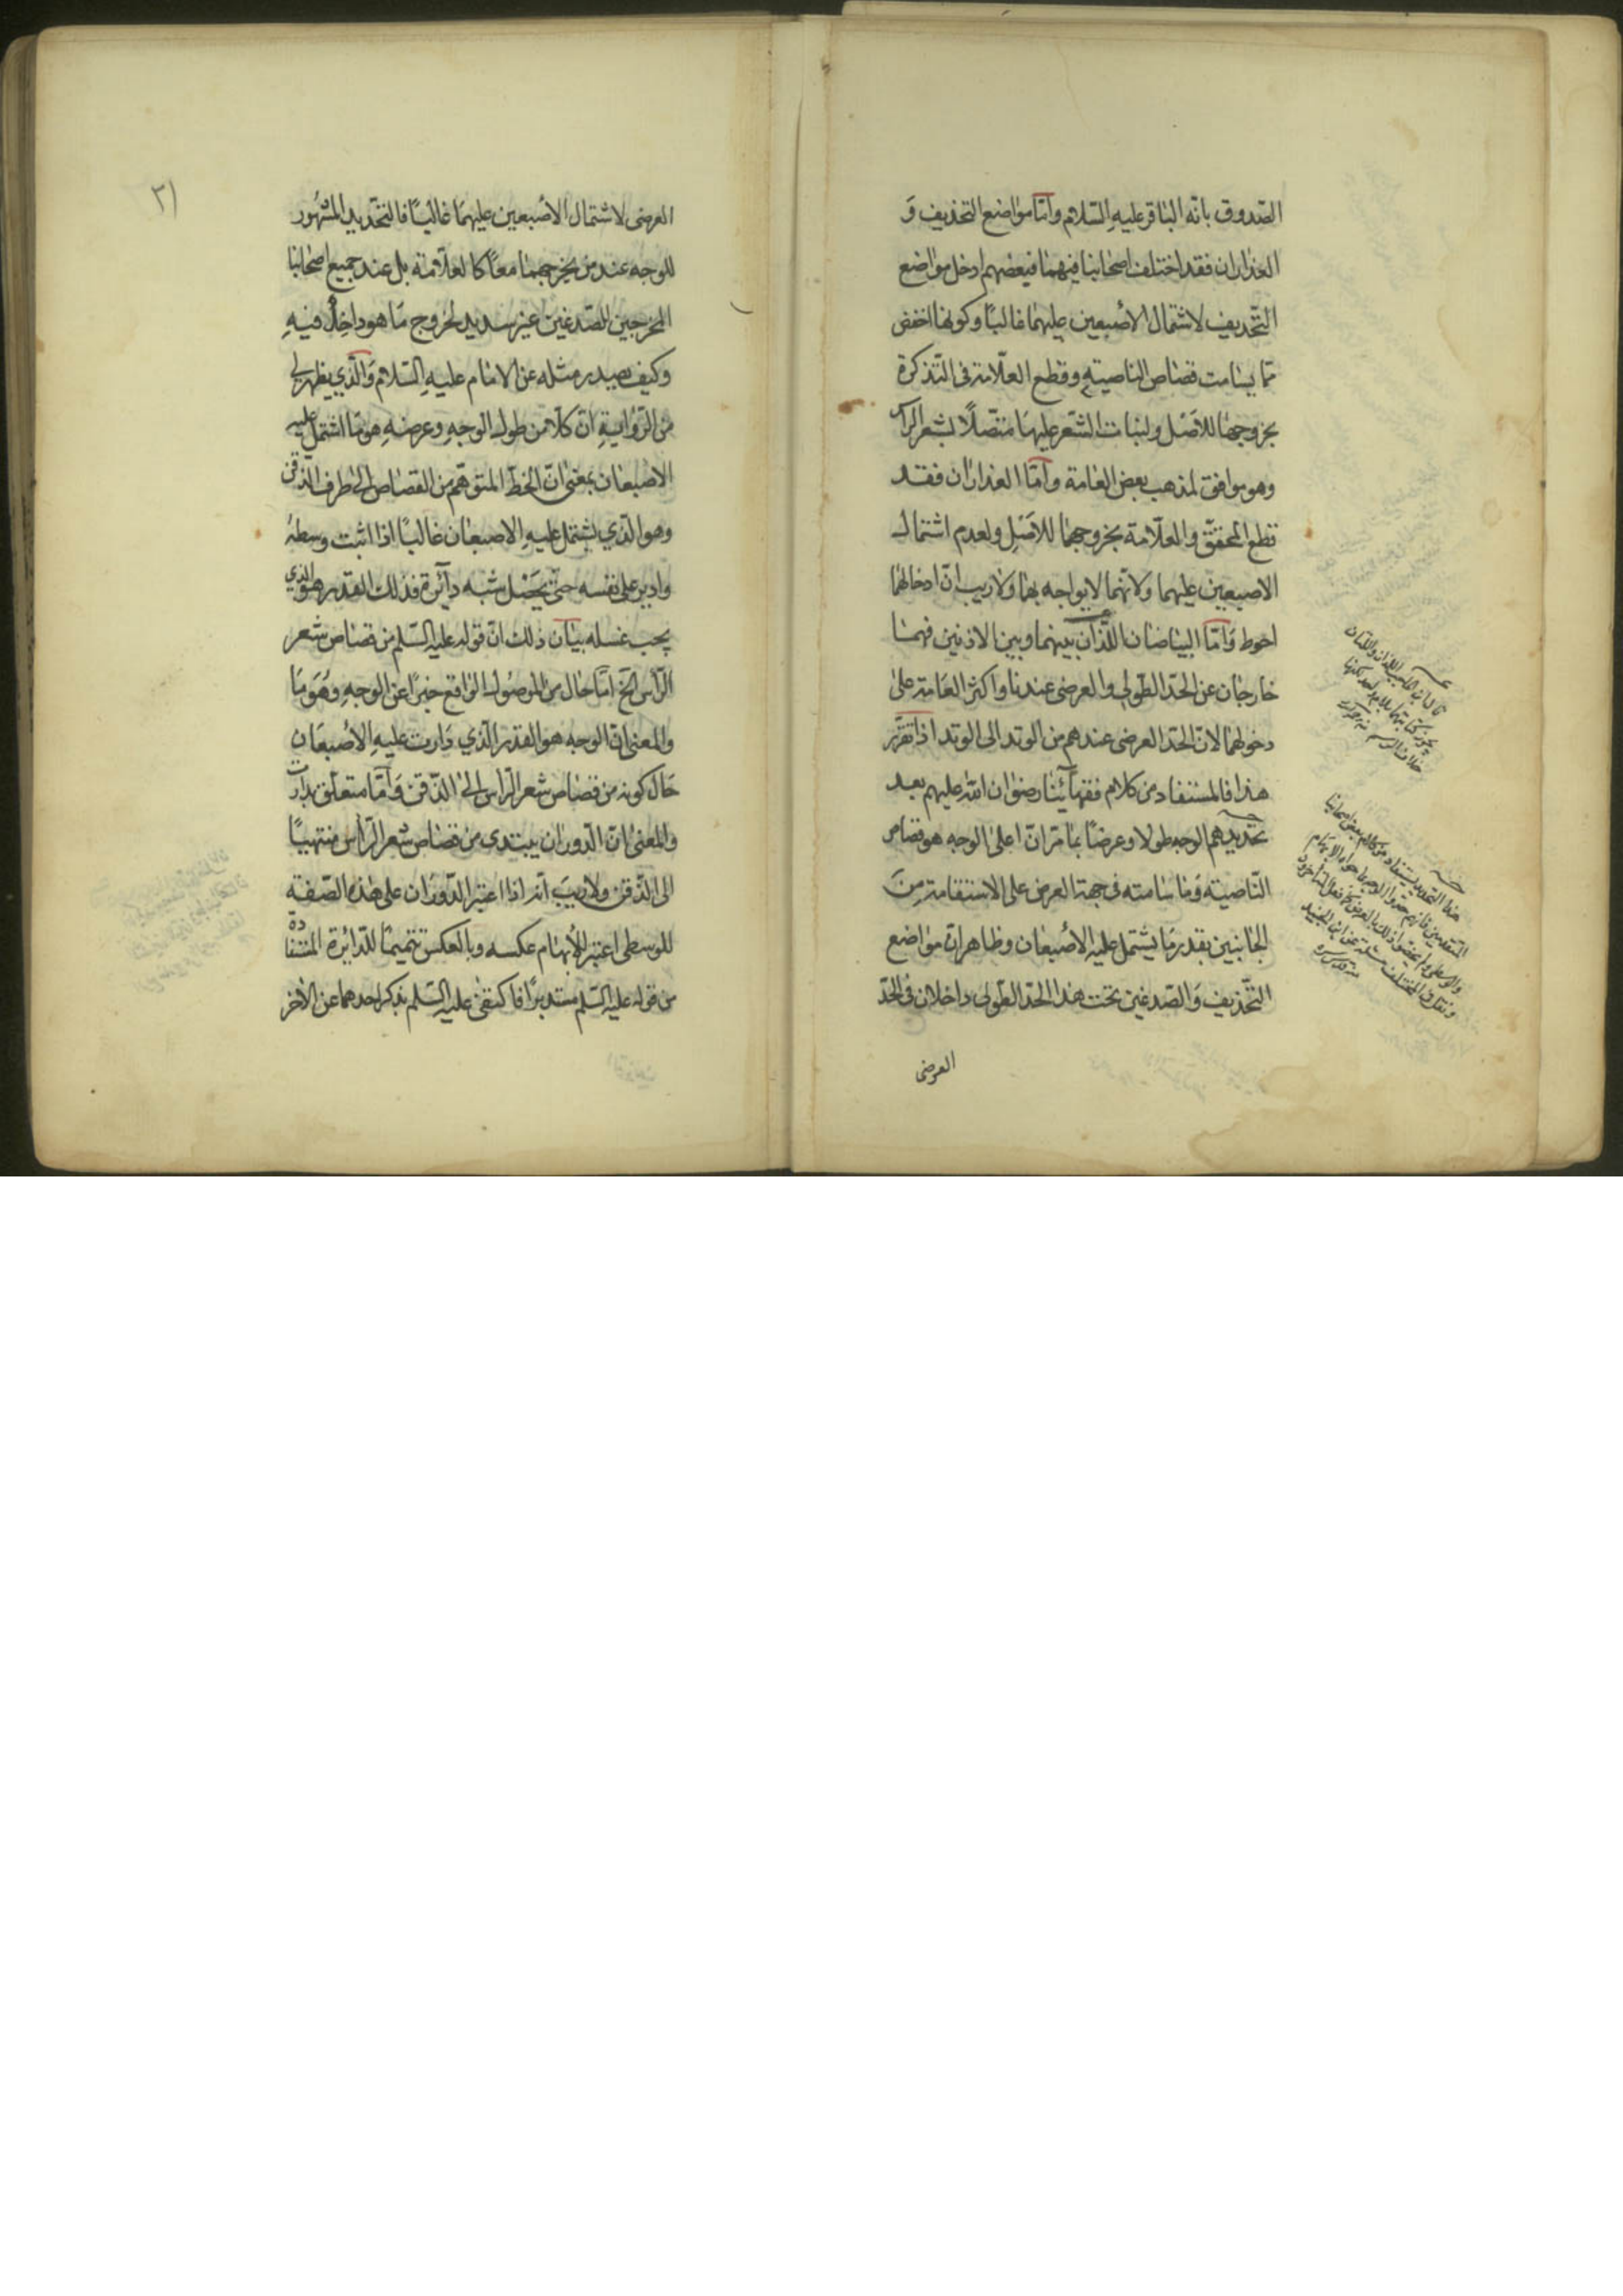 الصّدوق بانّه الباقر عليهِ السّلام وامّا مواضع التحذيف وَ
العذاران فقد اختلف اصحابنا فيهما فبعضهم ادخل مواضع
التّحذيف لاشتمال الاصْبعين عليهما غالبًا وكونها اخفض
ممّا يسامت قصاص الناصيةِ وقطع العلّامة فى التّذكرة
بخروجها للاَصْل ولنبات الشّعر عليها متّصلًا بشعر الراس
وهو موافق لمذهب بعض العامة وامّا العذاران فقد
قطع المحقّق والعلّامة بخروجهما للاَصْلِ ولعدم اشتمال
الاصبعين عليهما ولانّهما لا يواجه بهما ولا ريب انّ ادخالهما
احوط وَامّا البياضان اللّذان بينهما وبين الاذنين فهما
خارجان عن الحدّ الطّولى والعرضى عندنا واكثر العَامة على
دخولهما لانّ الحدّ العرضى عندهم من الوتد الى الوتد اذا تقرّر
هذا فالمستفاد من كلام فقهآئنا رضوان الله عليهم بعد
تحديدهم الوجه طولا وعرضًا بما مرّ انّ اعلى الوجه هو قصاص
النّاصية وَما سامته فى جهة العرض على الاستقامة مِنَ
الجانبين بقدر مَا يشتمل عليه الاصْبعان وظاهر انّ مواضع
التّحذيف وَالصّدغين تحت هذا الحدّ الطّولى داخلان فى الحدّ
العرضى
هذا التحديد يستفاد من كلام بعض اصحابنا
٢١
العرضى لاشتمال الاصْبعين عليهمَا غالبًا فالتحّديد المشهُور
للوجه عند من يخرجهما معًا كالعلّامة بل عند جميع اصحابنا
المخرجين للصّدغين غير سديد لخروج مَا هو داخِلٌ فيهِ
وكيف يصدر مثله عن الامام عليهِ السّلام وَالّذي يظهر لى
من الرّوايةِ انّ كلّا من طول الوجهِ وعرضهِ هو مَا اشتمل عليه
الاصْبعان بمعنى انّ الخطّ المتوهّم من القصاص الى طرف الذقن
وهو الّذي يشتمل عليهِ الاصبعان غالبًا اذا اثبت وسطهُ
وادير على نفسه حتّى يحَصْل شبه دآئرة فذلك القدر هو الّذي
يجب غسله بيان ذلك انّ قوله عليه السّلم من قصاص شعر
الرّأس الخ امّا حال من الموصُول الواقع خبرًا عن الوجهِ وَهوَ مَا
والمعنى انّ الوجه هو القدر الّذي دَارت عليهِ الاصْبعَان
حَال كونه من قصاص شعر الرّاس الى الذّقن وَامّا متعلّق بدارت
والمعنى انّ الّدوران يبتدى من قصاص شعر الرّأس منتهيًا
الى الذّقن ولا ريبَ انّه اذا اعتبر الدّورَان على هذه الصّفة
للوسطى اعتبر للاِْبهام عكسه وبالعكس تتميمًا للدّائرة المستفادة
من قوله عليه السّلم مستديرًا فاكتفى عليه السّلم بذكر احدهما عن الاْخر